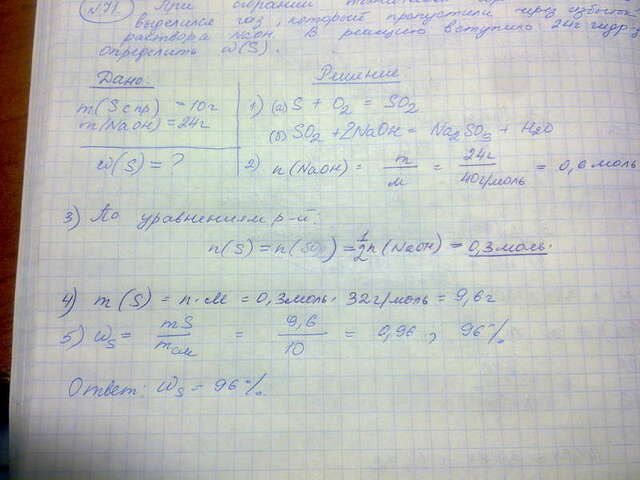 №71. При сгорании
выделился газ, который пропустили через избыток
раствора NaOH. В реакцию вступило 24г гидр-
определить ω(S).
Дано:
m(S с пр) = 10г
m(NaOH) = 24г
ω(S) = ?
Решение:
1) (а) S + O2 = SO2
(б) SO2 + 2NaOH = Na2SO3 + H2O
2) n(NaOH) = m/M = 24г/40г/моль = 0,6 моль
3) По уравнениям р-й:
n(S) = n(SO2) = 1/2 n(NaOH) = 0,3 моль.
4) m(S) = n·M = 0,3моль · 32г/моль = 9,6г
5) ωS = mS/mсм = 9,6/10 = 0,96, 96%
Ответ: ωS = 96%.